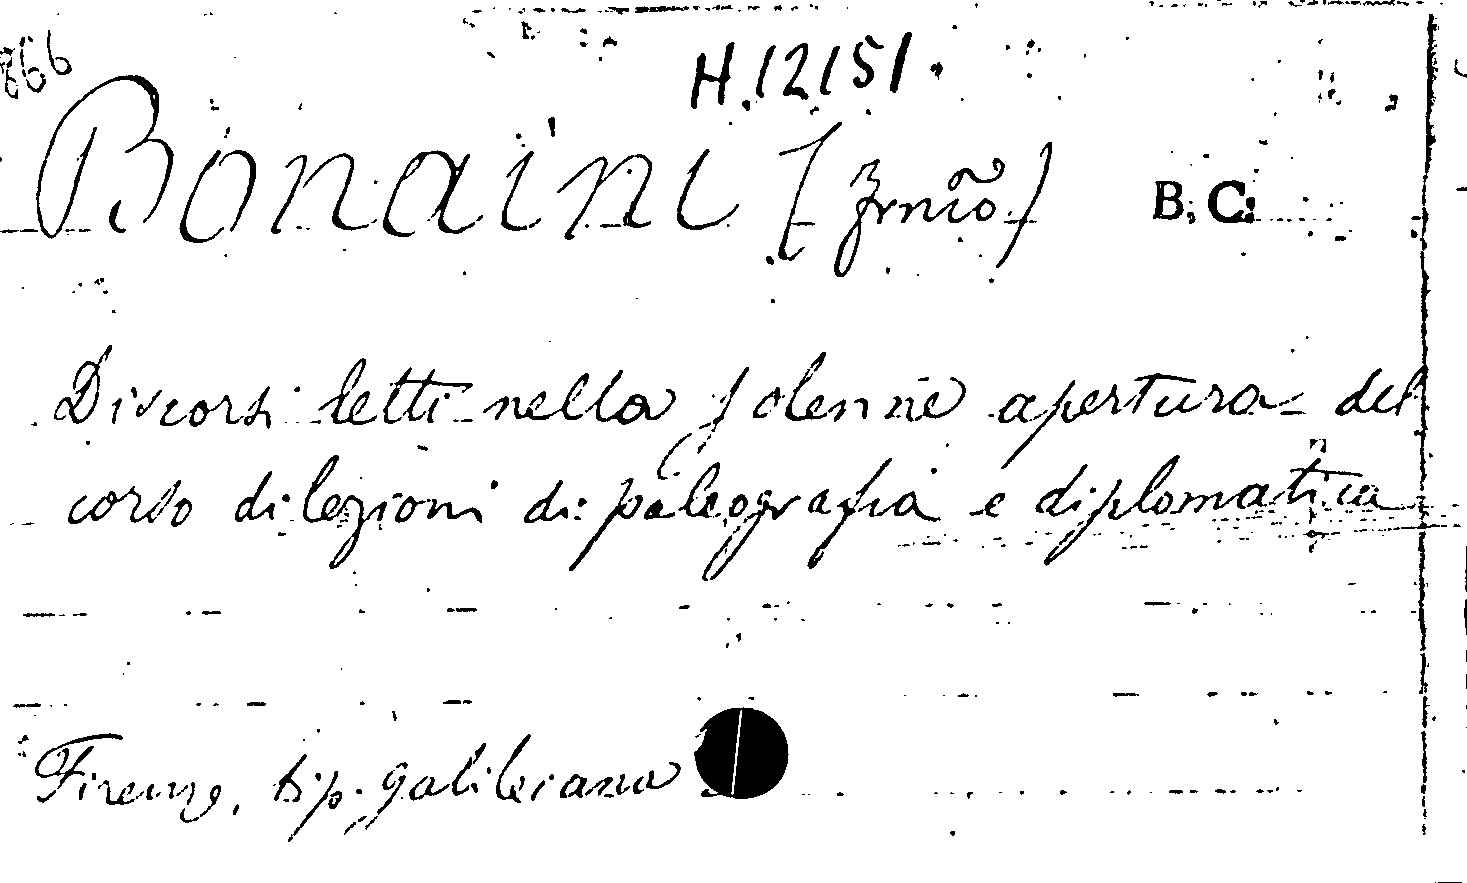 866
H.12151.
Bonaini (Frnco) B. C.
Discorsi letti nella solenne apertura del
corso di lezioni di paleografia e diplomatica
Firenze, tip. galileiana